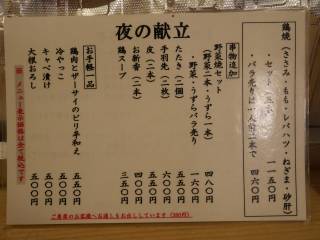 夜の献立
鶏焼(ささみ・もも・レバハツ・ねぎま・砂肝)
・セット(五本) 一一五〇円
・バラ売りは一人前二本で 四六〇円
串物追加
野菜焼セット 四八〇円
(野菜二本・うずら一本)
・野菜・うずらバラ売り 一六〇円
たたき(二個) 五五〇円
手羽先(二枚) 六〇〇円
皮(二本) 四五〇円
お新香(二本)
鶏スープ 三五〇円
お手軽一品
鶏肉とザーサイのピリ辛和え 五五〇円
冷やっこ 五〇〇円
キャベ漬け 五〇〇円
大根おろし 五〇〇円
メニュー表示価格は全て税込です
ご来店のお客様へお通しをお出ししています(300円)